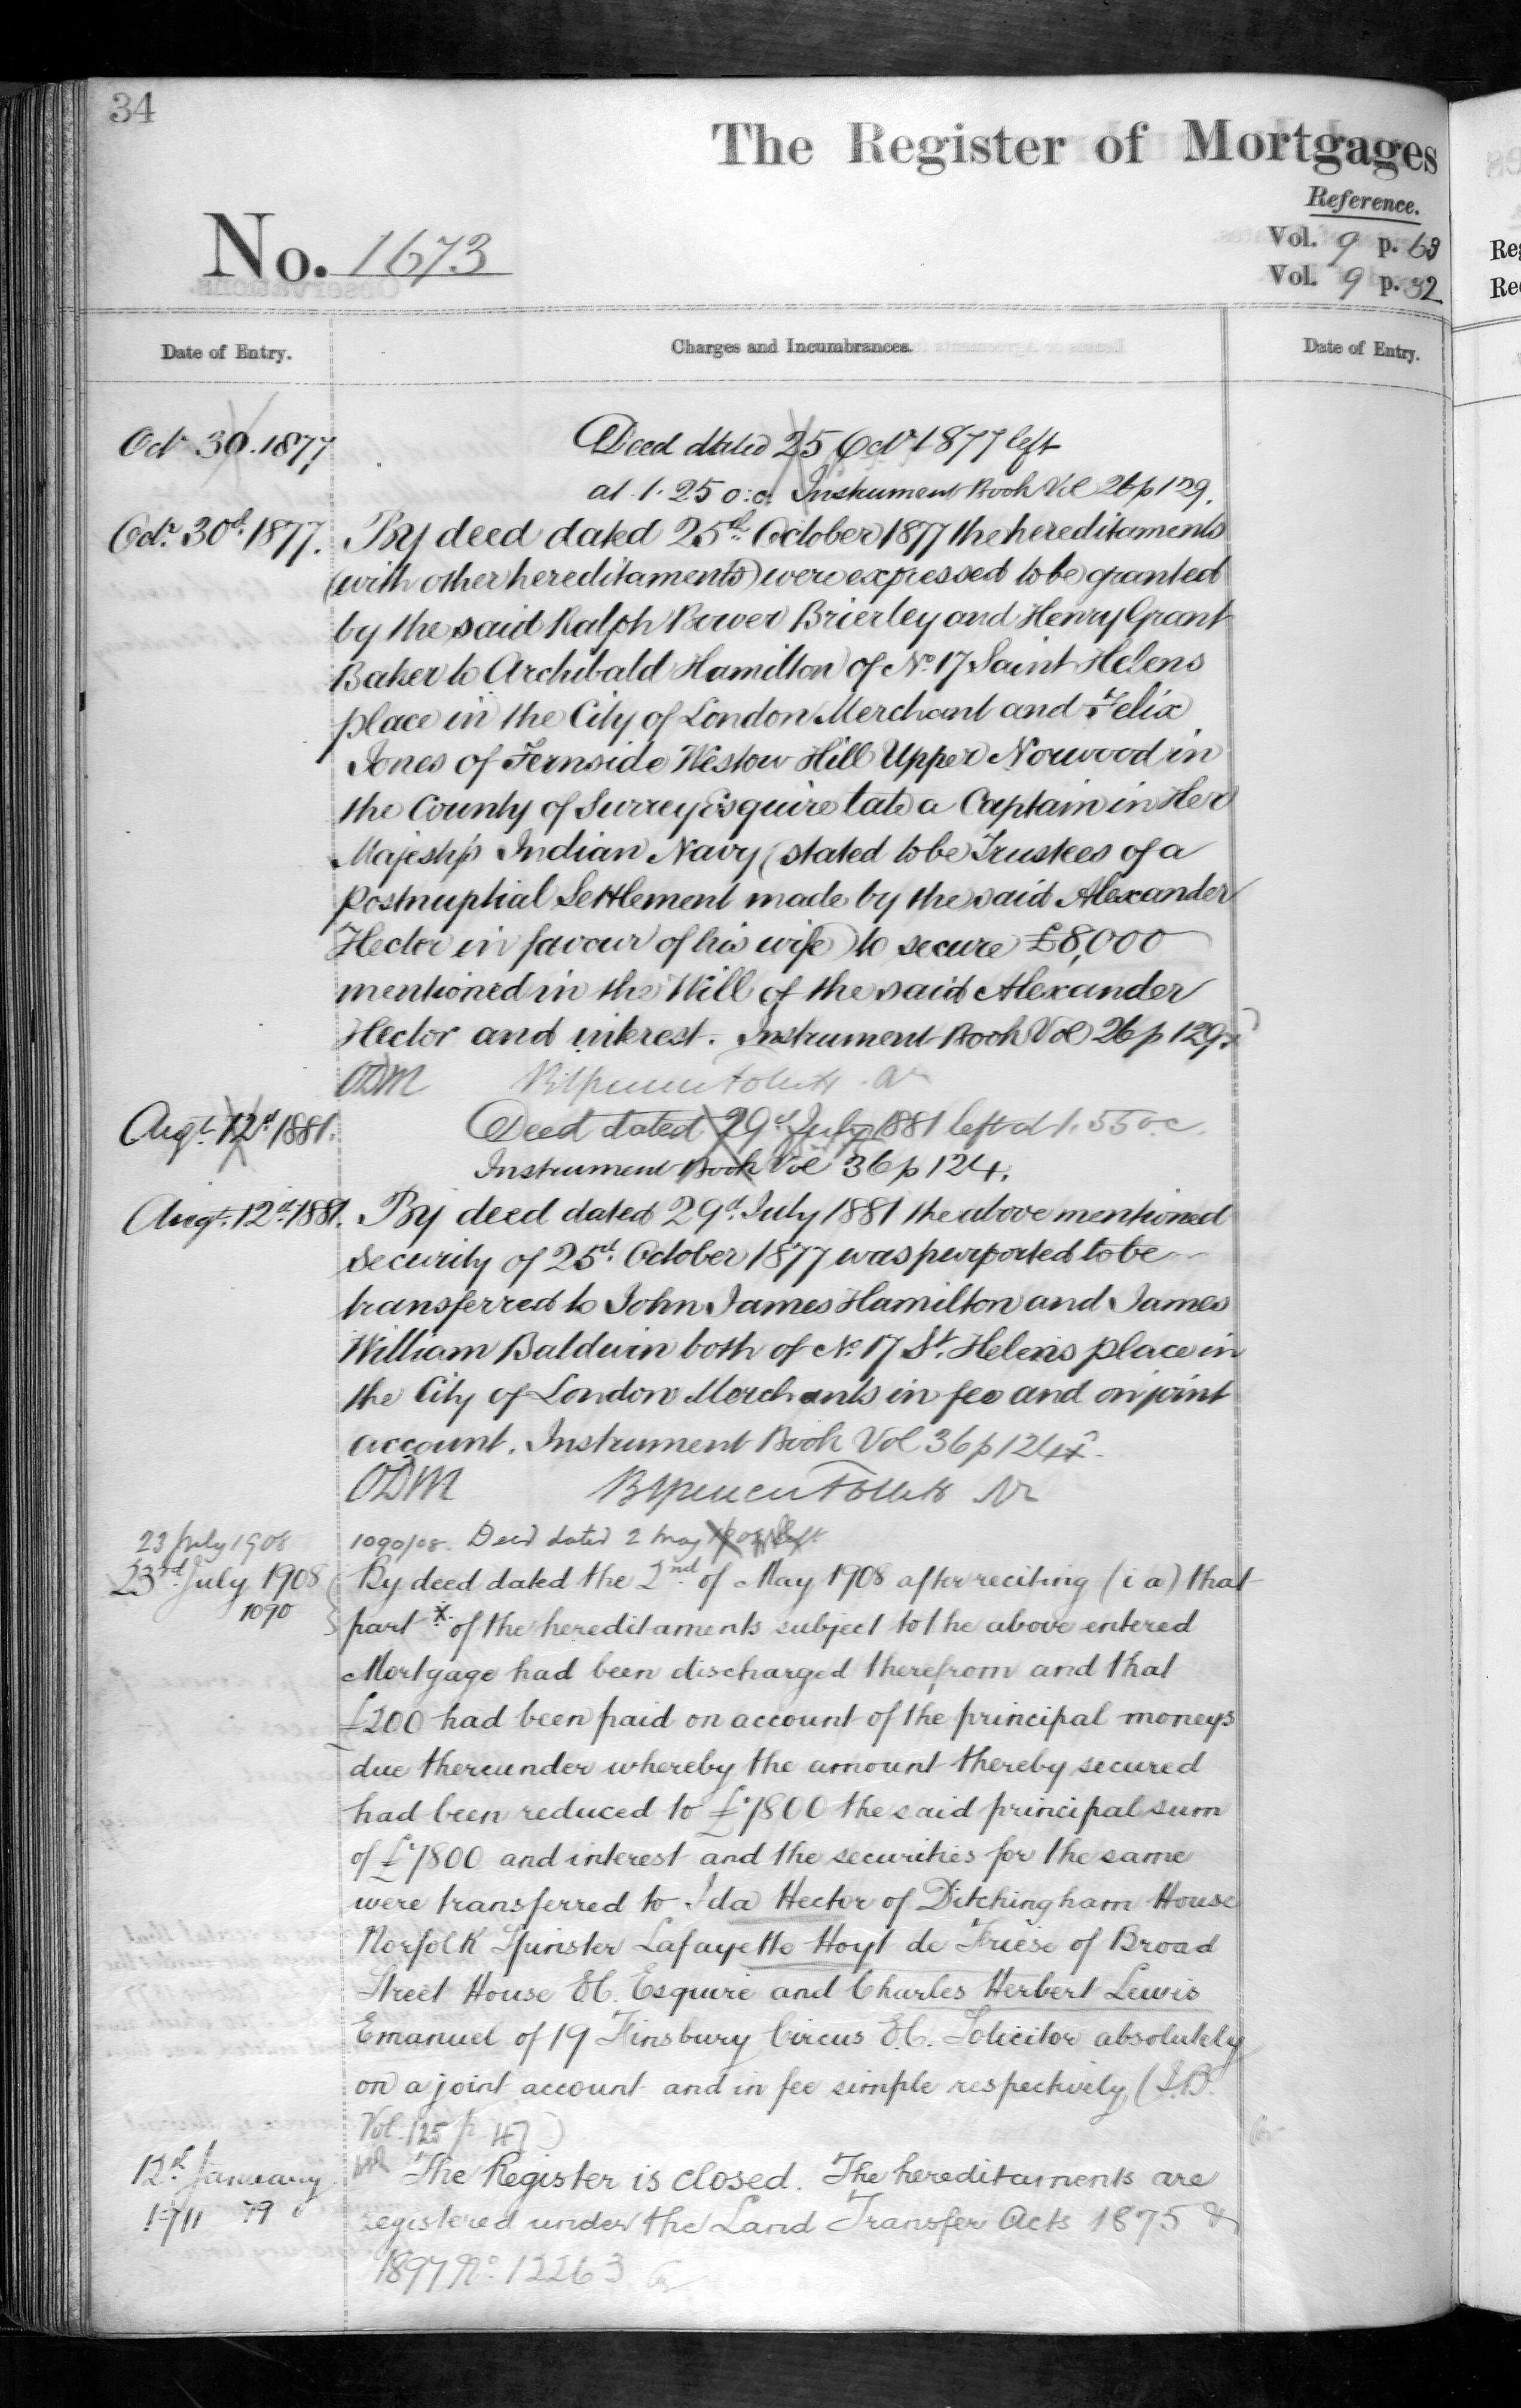 34
The Register of Mortgages
Reference.
No. 1673
Vol. 9 p. 63
Vol. 9 p. 32
Date of Entry.
Charges and Incumbrances.
Date of Entry.
Octr 30. 1877
Deed dated 25 Octr 1877 left
at 1.25 o:c. Instrument Book Vol 26 p 129.
Octr. 30th 1877.
By deed dated 25th October 1877 the hereditaments
(with other hereditaments) were expressed to be granted
by the said Ralph Bower Brierley and Henry Grant
Baker to Archibald Hamilton of No. 17 Saint Helens
place in the City of London Merchant and Felix
Jones of Fernside Westow Hill Upper Norwood in
the County of Surrey Esquire late a Captain in Her
Majesty's Indian Navy (stated to be Trustees of a
postnuptial Settlement made by the said Alexander
Hector in favour of his wife) to secure £8,000
mentioned in the Will of the said Alexander
Hector and interest. Instrument Book Vol 26 p 129.
ODM
Augt. 12th 1881.
Deed dated 29th July 1881 left at 1.55 o.c.
Instrument Book Vol 36 p 124.
Augt. 12th 1881.
By deed dated 29th July 1881 the above mentioned
security of 25th October 1877 was purported to be
transferred to John James Hamilton and James
William Baldwin both of No. 17 St. Helen's place in
the City of London Merchants in fee and on joint
account. Instrument Book Vol 36 p 124
ODM
23 July 1908
1090/08. Deed dated 2 May 1908 left
23rd July 1908
1090
By deed dated the 2nd of May 1908 after reciting (i a) that
part x of the hereditaments subject to the above entered
Mortgage had been discharged therefrom and that
£200 had been paid on account of the principal moneys
due thereunder whereby the amount thereby secured
had been reduced to £7800 the said principal sum
of £7800 and interest and the securities for the same
were transferred to Ida Hector of Ditchingham House
Norfolk Spinster Lafayette Hoyt de Friese of Broad
Street House E.C. Esquire and Charles Herbert Lewis
Emanuel of 19 Finsbury Circus E.C. Solicitor absolutely
on a joint account and in fee simple respectively (I.B.
Vol. 125 p. 47)
12th January
1911 79
The Register is closed. The hereditaments are
registered under the Land Transfer Acts 1875 &
1897 No. 12263